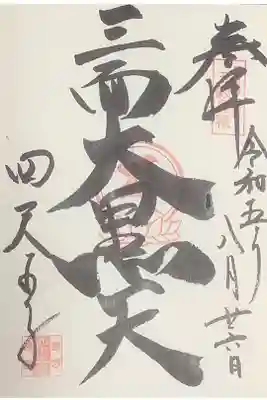 奉拝
令和五年八月廿六日
三面大黒天
四天王寺